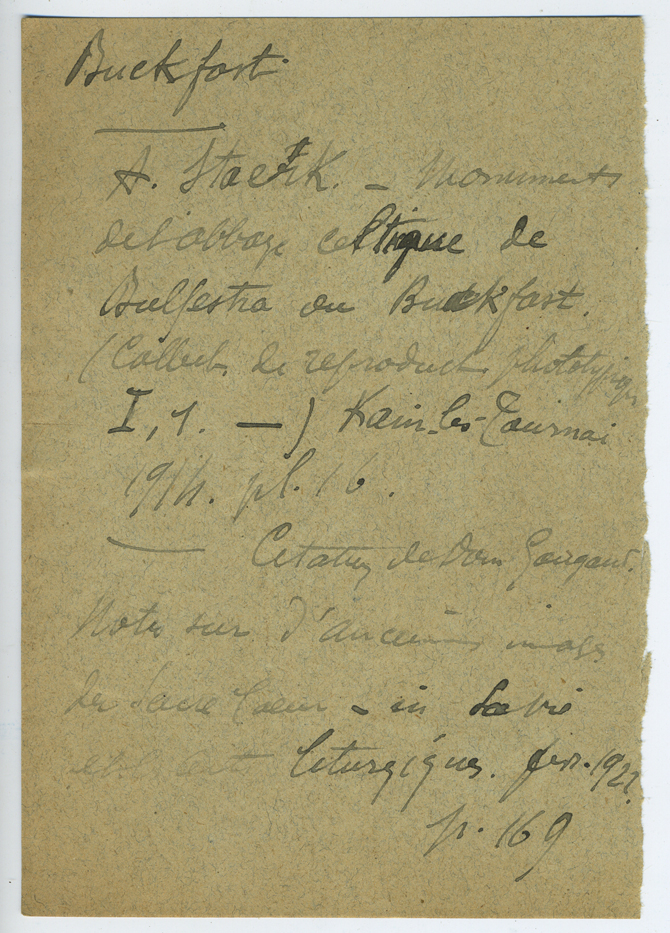 Buckfast
A. Staerk. – Monuments
de l'abbaye celtique de
Bulfestra ou Buckfast.
(Collect. de reproduct. phototypique
I, 1. —) Kain-lès-Tournai
1914. pl. 16.
Citation de Dom Gougaud.
Notes sur d'anciennes images
du Sacré Coeur – in La vie
et les arts liturgiques. fev. 192
p. 169